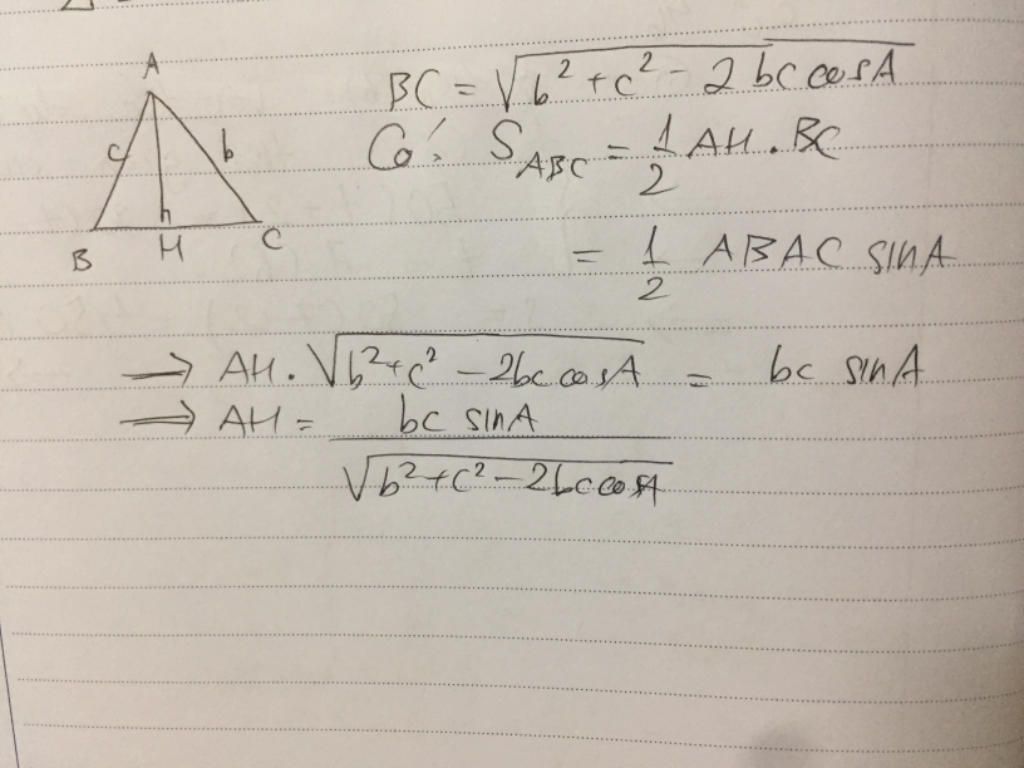 A
c
b
B
H
C
BC = √(b² + c² - 2bc cosA)
Có: S_ABC = 1/2 AH . BC
= 1/2 AB AC sinA
⇒ AH . √(b² + c² - 2bc cosA) = bc sinA
⇒ AH = bc sinA / √(b² + c² - 2bc cosA)